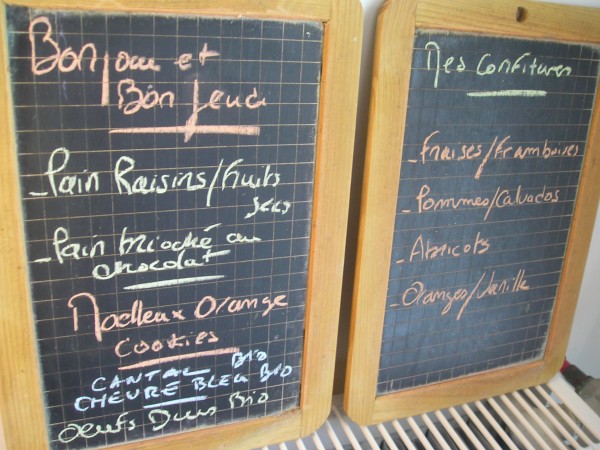 Bonjour et
Bon Jeudi
-Pain Raisins/Fruits
secs
-Pain brioché au
chocolat
Moelleux Orange
COOKIES
CANTAL BIO
CHEVRE BLEU BIO
Oeufs Durs Bio
Mes Confitures
-Fraises/Framboises
-Pommes/Calvados
-Abricots
-Oranges/Vanille